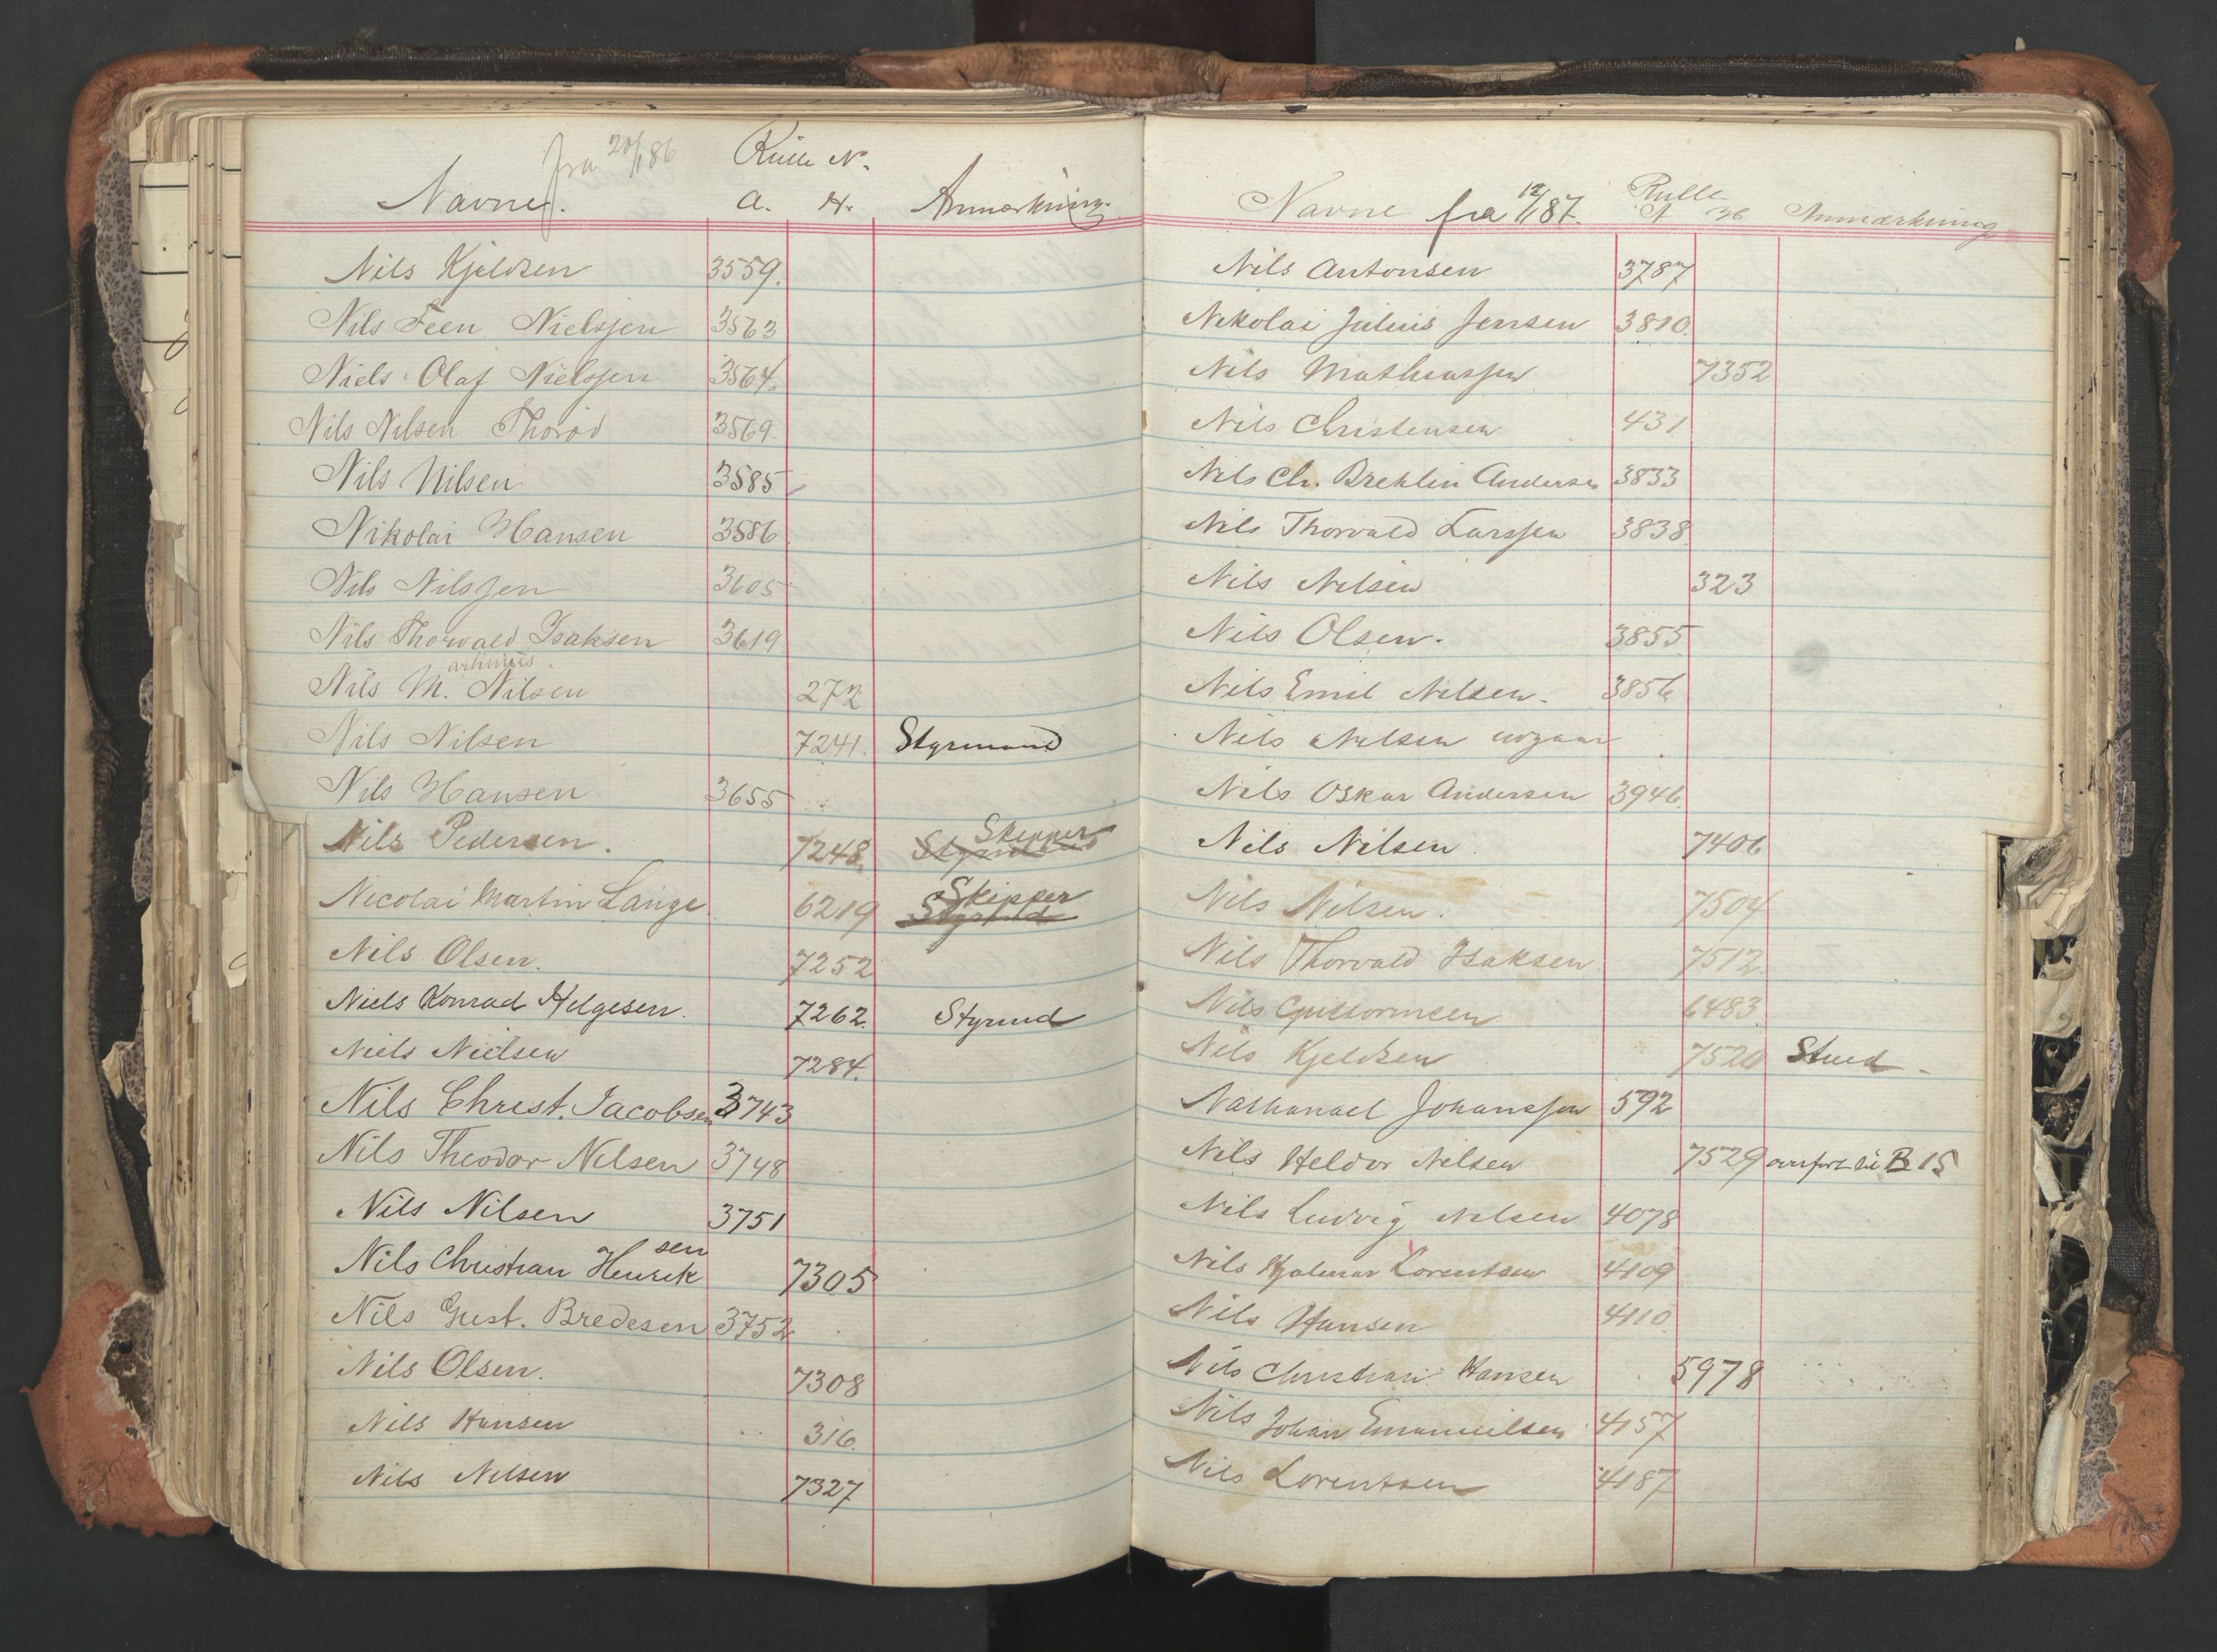 fra 20/1 86 Rulle N.
Navne. A. H. Anmærkning.
Nils Kjeldsen 3559.
Nils Feen Nielssen 3563
Niels Olaf Nielssen 3564.
Nils Nilsen Thorød 3569.
Nils Nilsen 3585
Nikolai Hansen 3586
Nils Nilssen 3605
Nils Thorvald Isaksen 3619
artinius
Nils M. Nilsen 272
Nils Nilsen 7241. Styrmand
Nils Hansen 3655
Skipper
Nils Pedersen. 7248. Styrmd
Skipper
Nicolai Martin Lange 6219 Styrmd
Nils Olsen. 7252
Niels Konrad Helgesen. 7262. Styrmd
Niels Nielsen 7284.
Nils Christ. Jacobsen 3743
Nils Theodor Nilsen 3748
Nils Nilsen 3751
sen
Nils Christian Henrik 7305
Nils Gust. Bredesen 3752
Nils Olsen. 7308
Nils Hansen 316.
Nils Nilsen 7327
Rulle
Navne fra 12/1 87. A H Anmærkning
Nils Antonsen 3787
Nikolai Julius Jensen 3810.
Nils Mathiassen 7352
Nils Christensen 431
Nils Ch. Brehlin Andersen 3833
Nils Thorvald Larssen 3838
Nils Nilsen 323
Nils Olsen. 3855
Nils Emil Nilsen. 3856
Nils Nilsen udgaar
Nils Oskar Andersen 3946.
Nils Nilsen 7406
Nils Nilsen. 7504
Nils Thorvald Isaksen 7512
Nils Guttormsen 6483
Nils Kjeldsen 7520 Stmd
Nathanael Johanssen 592
Nils Heldor Nilsen 7529 overført til B 15
Nils Ludvig Nilsen 4078
Nils Hjalmar Lorentsen 4109
Nils Hansen 4110
Nils Christian Hansen 5978
Nils Johan Emanuelsen 4157
Nils Lorentsen 4187